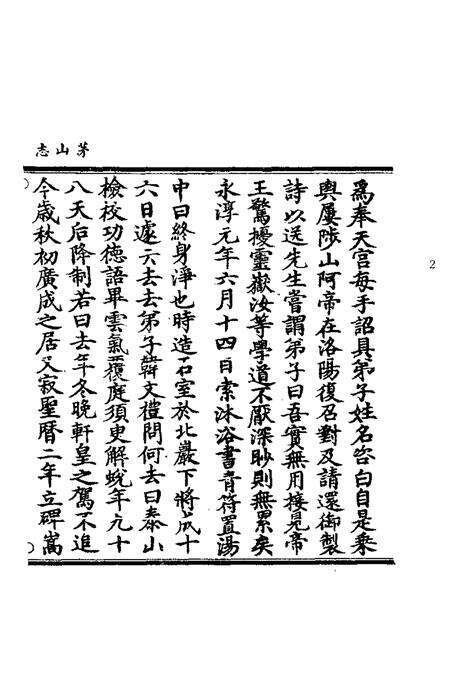 茅山志
爲奉天宮每手詔具弟子姓名咨白自是乘
輿屢陟山阿帝在洛陽復召對及請還御製
詩以送先生嘗謂弟子曰吾實無用接見帝
王驚擾靈嶽汝等學道不厭深眇則無累矣
永淳元年六月十四日索沐浴書青符置湯
中曰終身淨也時造石室於北巖下將成十
六日遽云去去弟子韓文禮問何去曰泰山
檢校功德語畢雲氣覆庭須臾解蛻年九十
八天后降制若曰去年冬晚軒皇之駕不追
今歲秋初廣成之居又寂聖曆二年立碑嵩
2